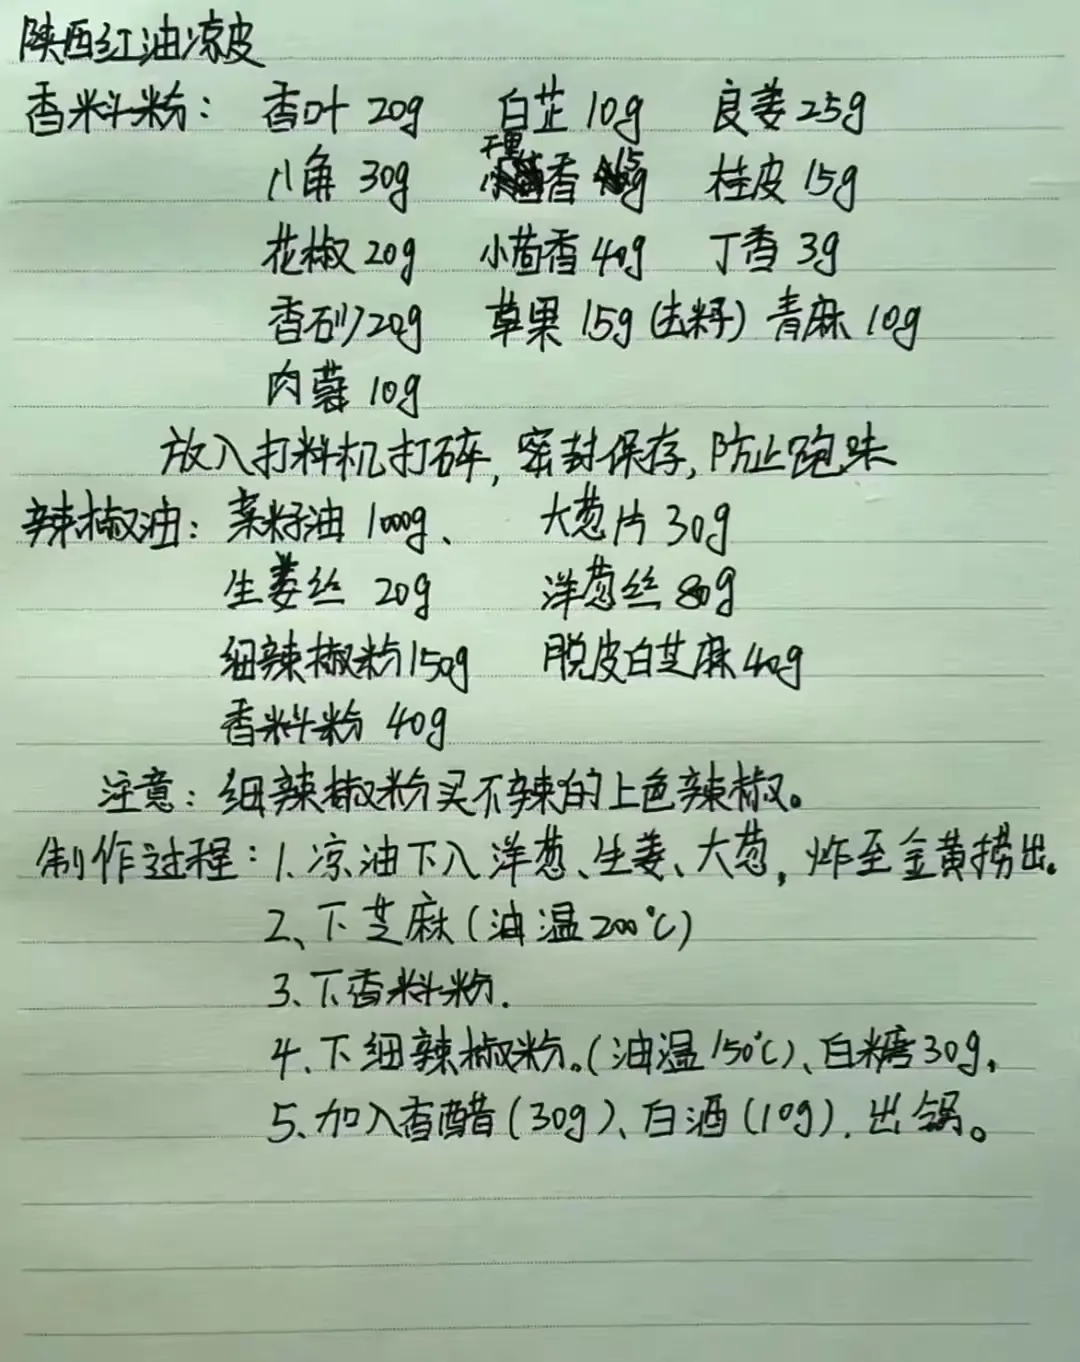 陕西红油凉皮
香料粉：香叶 20g 白芷 10g 良姜 25g
八角 30g 千里香 15g 桂皮 15g
花椒 20g 小茴香 40g 丁香 3g
香砂 20g 草果 15g (去籽) 青麻 10g
肉蔻 10g
放入打料机打碎，密封保存，防止跑味
辣椒油：菜籽油 1000g、 大葱片 30g
生姜丝 20g 洋葱丝 80g
细辣椒粉 150g 脱皮白芝麻 40g
香料粉 40g
注意：细辣椒粉买不辣的上色辣椒。
制作过程：1、凉油下入洋葱、生姜、大葱，炸至金黄捞出。
2、下芝麻（油温200℃）
3、下香料粉.
4、下细辣椒粉。(油温150℃)、白糖30g，
5、加入香醋(30g)、白酒(10g). 出锅。